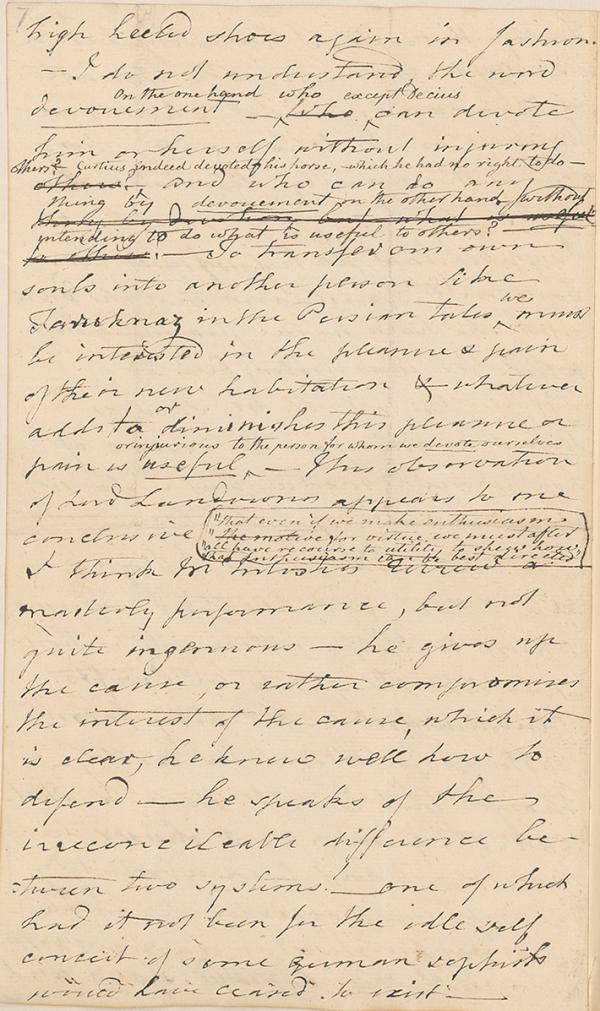 7
high heeled shoes again in fashion.
— I do not understand, the word
On the one hand who except Decius
devouement — who can devote
him or herself without injuring
others? Curtius indeed devoted his horse, which he had no right to do —
others? and who can do any
thing by devouement on the other hand, without
thing by devotion but what is useful
intending to do what is useful to others?
to others. — To transfer our own
souls into another person like
Fadruknaz in the Persian tales, we must
be interested in the pleasure & pain
of their new habitation & whatever
adds to or diminishes this pleasure or
or injurious to the person for whom we devote ourselves
pain is useful — This observation
of Lord Landsdowns appears to me
conclusive "that even if we make enthusiasm
"the motive for virtue, we must after
"all have recourse to utility to shew how
that Enthusiasm can be best directed
I think McIntoshes review a
masterly performance, but not
quite ingenuous — he gives up
the cause, or rather compromises
the interest of the cause, which it
is clear, he knew well how to
defend — he speaks of the
irreconcileable difference be-
-tween two systems. — one of which
had it not been for the idle self
conceit of some german sophists
would have ceased to exist —